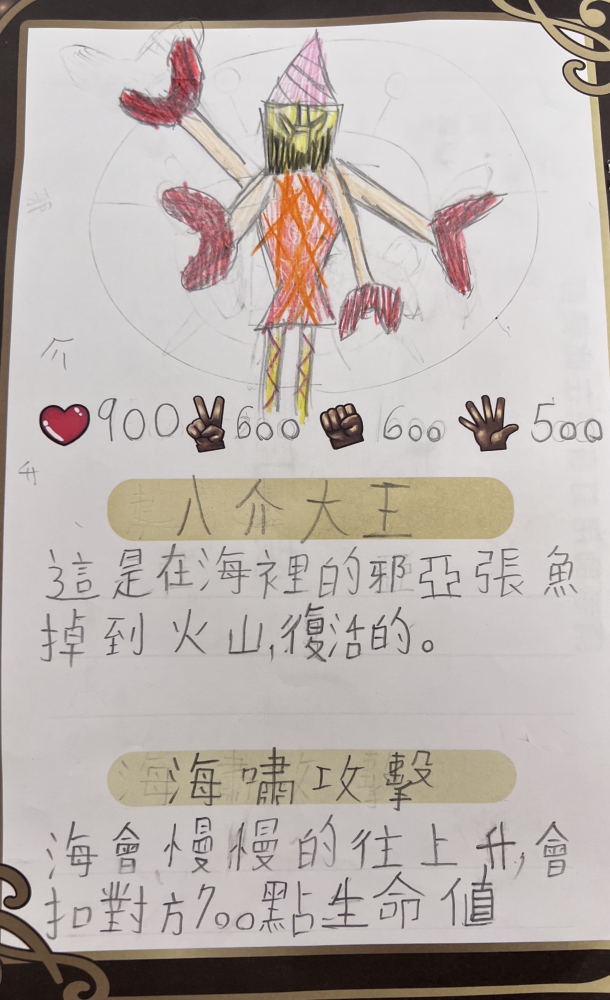 介
900 600 600 500
升
八介大王
這是在海裡的邪亞張魚
掉到火山,復活的。
海嘯攻擊
海會慢慢的往上升,會
扣對方700點生命值